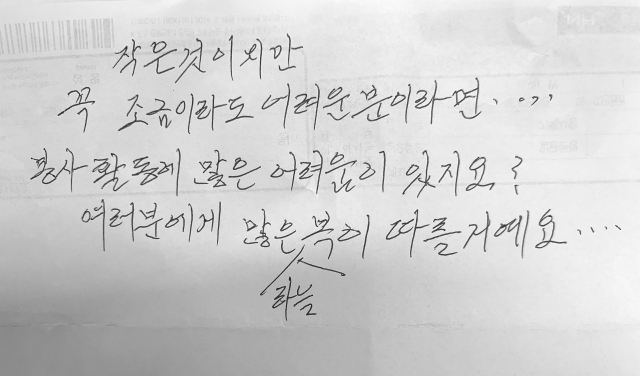 작은것이지만
꼭 조금이라도 어려운분이라면....
봉사활동에 많은 어려움이 있지요?
여러분에게 많은 복이 따를거예요....
하늘